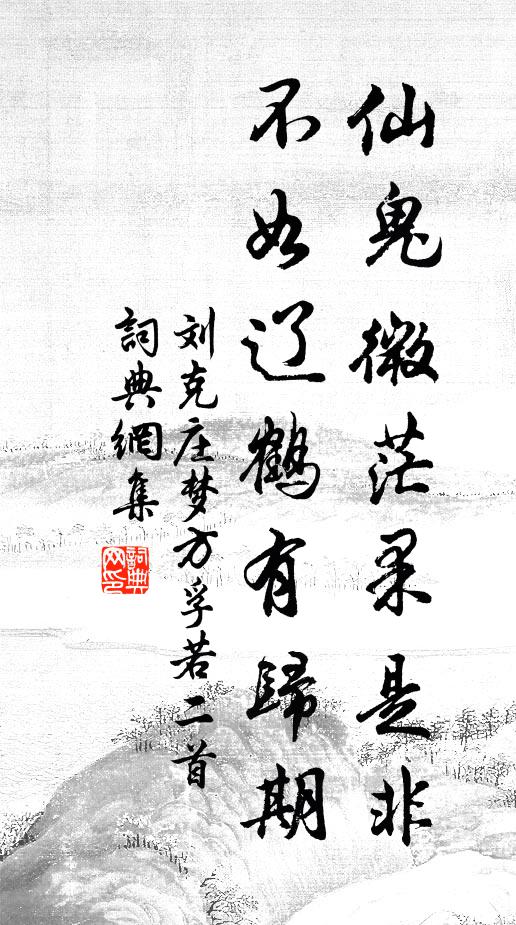 仙鬼微茫果是非
不如辽鹤有歸期
刘克庄梦方孚若二首
詞典網集
詞典网印